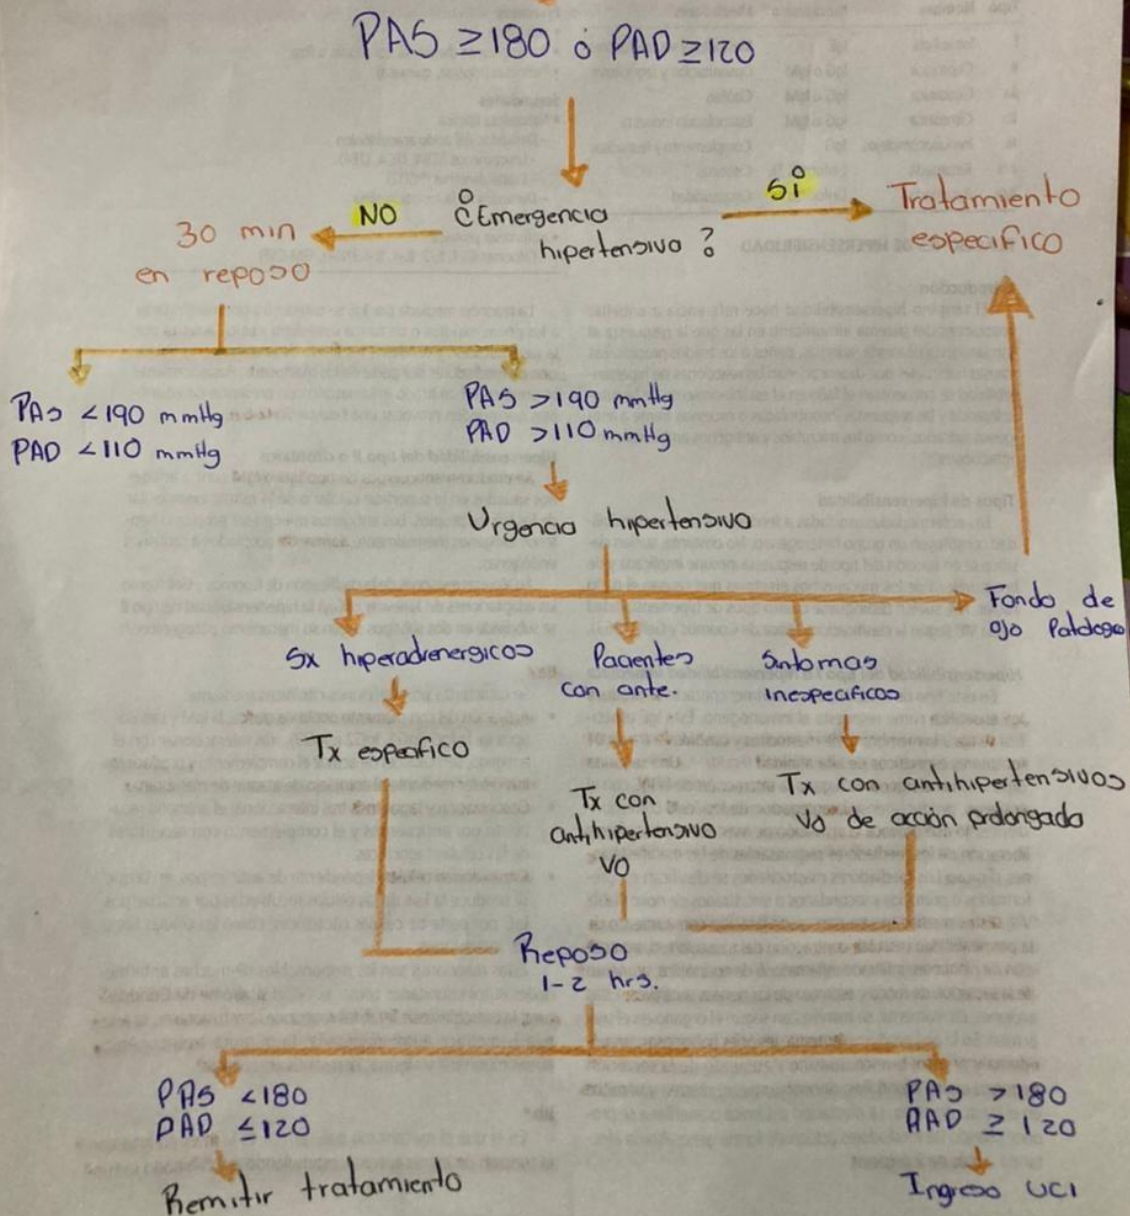 PAS ≥180 ó PAD ≥120
NO
¿Emergencia
hipertensiva ?
Sí
Tratamiento
especifico
30 min
en reposo
PAS <190 mmHg
PAD <110 mmHg
PAS >190 mmHg
PAD >110 mmHg
Urgencia hipertensiva
Sx hiperadrenergicos
Pacientes
con ante.
Sintomas
inespecificos
Fondo de
ojo Patologo
Tx especifico
Tx con
antihipertensivo
VO
Tx con antihipertensivos
VO de acción prolongada
Reposo
1-2 hrs.
PAS <180
PAD ≤120
Remitir tratamiento
PAS >180
PAD ≥ 120
Ingreso UCI